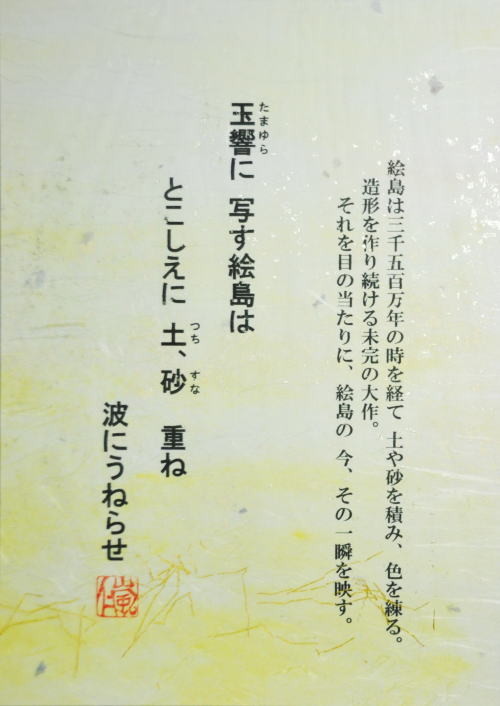 絵島は三千五百万年の時を経て 土や砂を積み、色を練る。
造形を作り続ける未完の大作。
それを目の当たりに、絵島の 今、その一瞬を映す。
玉響に 写す絵島は
たまゆら
とこしえに 土、砂 重ね
つち すな
波にうねらせ